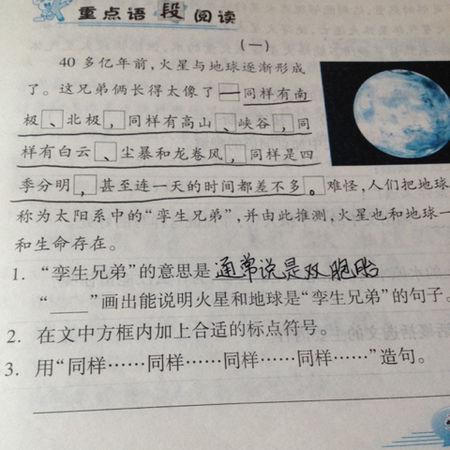 重点语段阅读
（一）
40多亿年前，火星与地球逐渐形成
了。这兄弟俩长得太像了—同样有南
极、北极，同样有高山、峡谷，同
样有白云、尘暴和龙卷风，同样是四
季分明，甚至连一天的时间都差不多。难怪，人们把地球
称为太阳系中的“孪生兄弟”，并由此推测，火星也和地球一
和生命存在。
1. “孪生兄弟”的意思是通常说是双胞胎
“___”画出能说明火星和地球是“孪生兄弟”的句子。
2. 在文中方框内加上合适的标点符号。
3. 用“同样……同样……同样……同样……”造句。